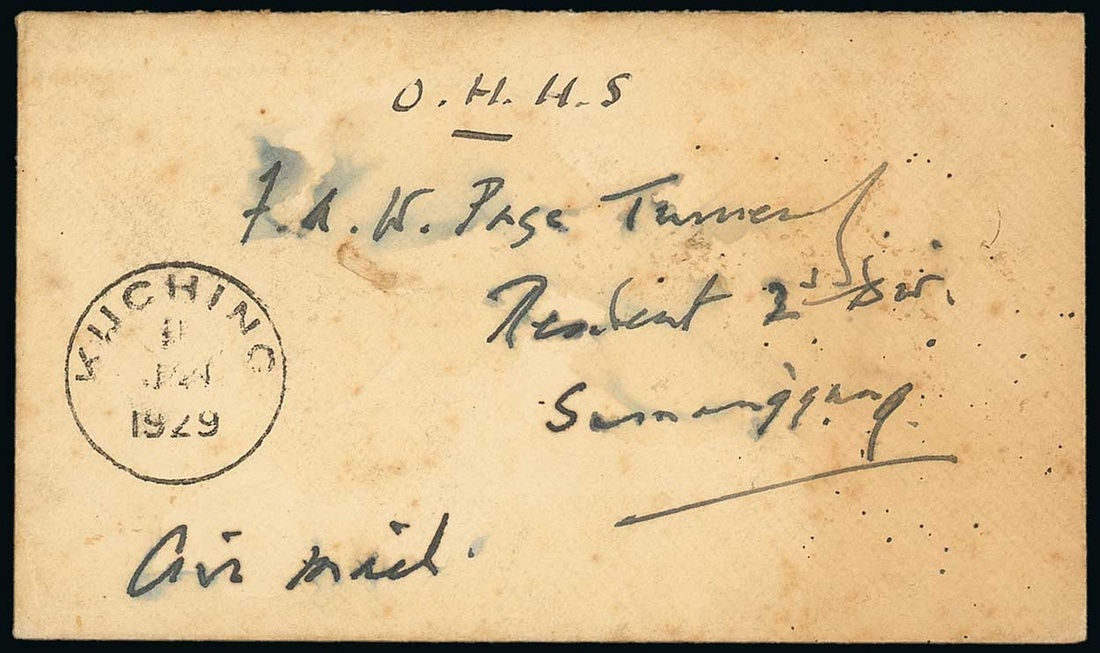 O.H.H.S
F.A.W. Page Turner
Resident 2nd Div.
Simanggang
KUCHING
JAN
1929
Air mail.